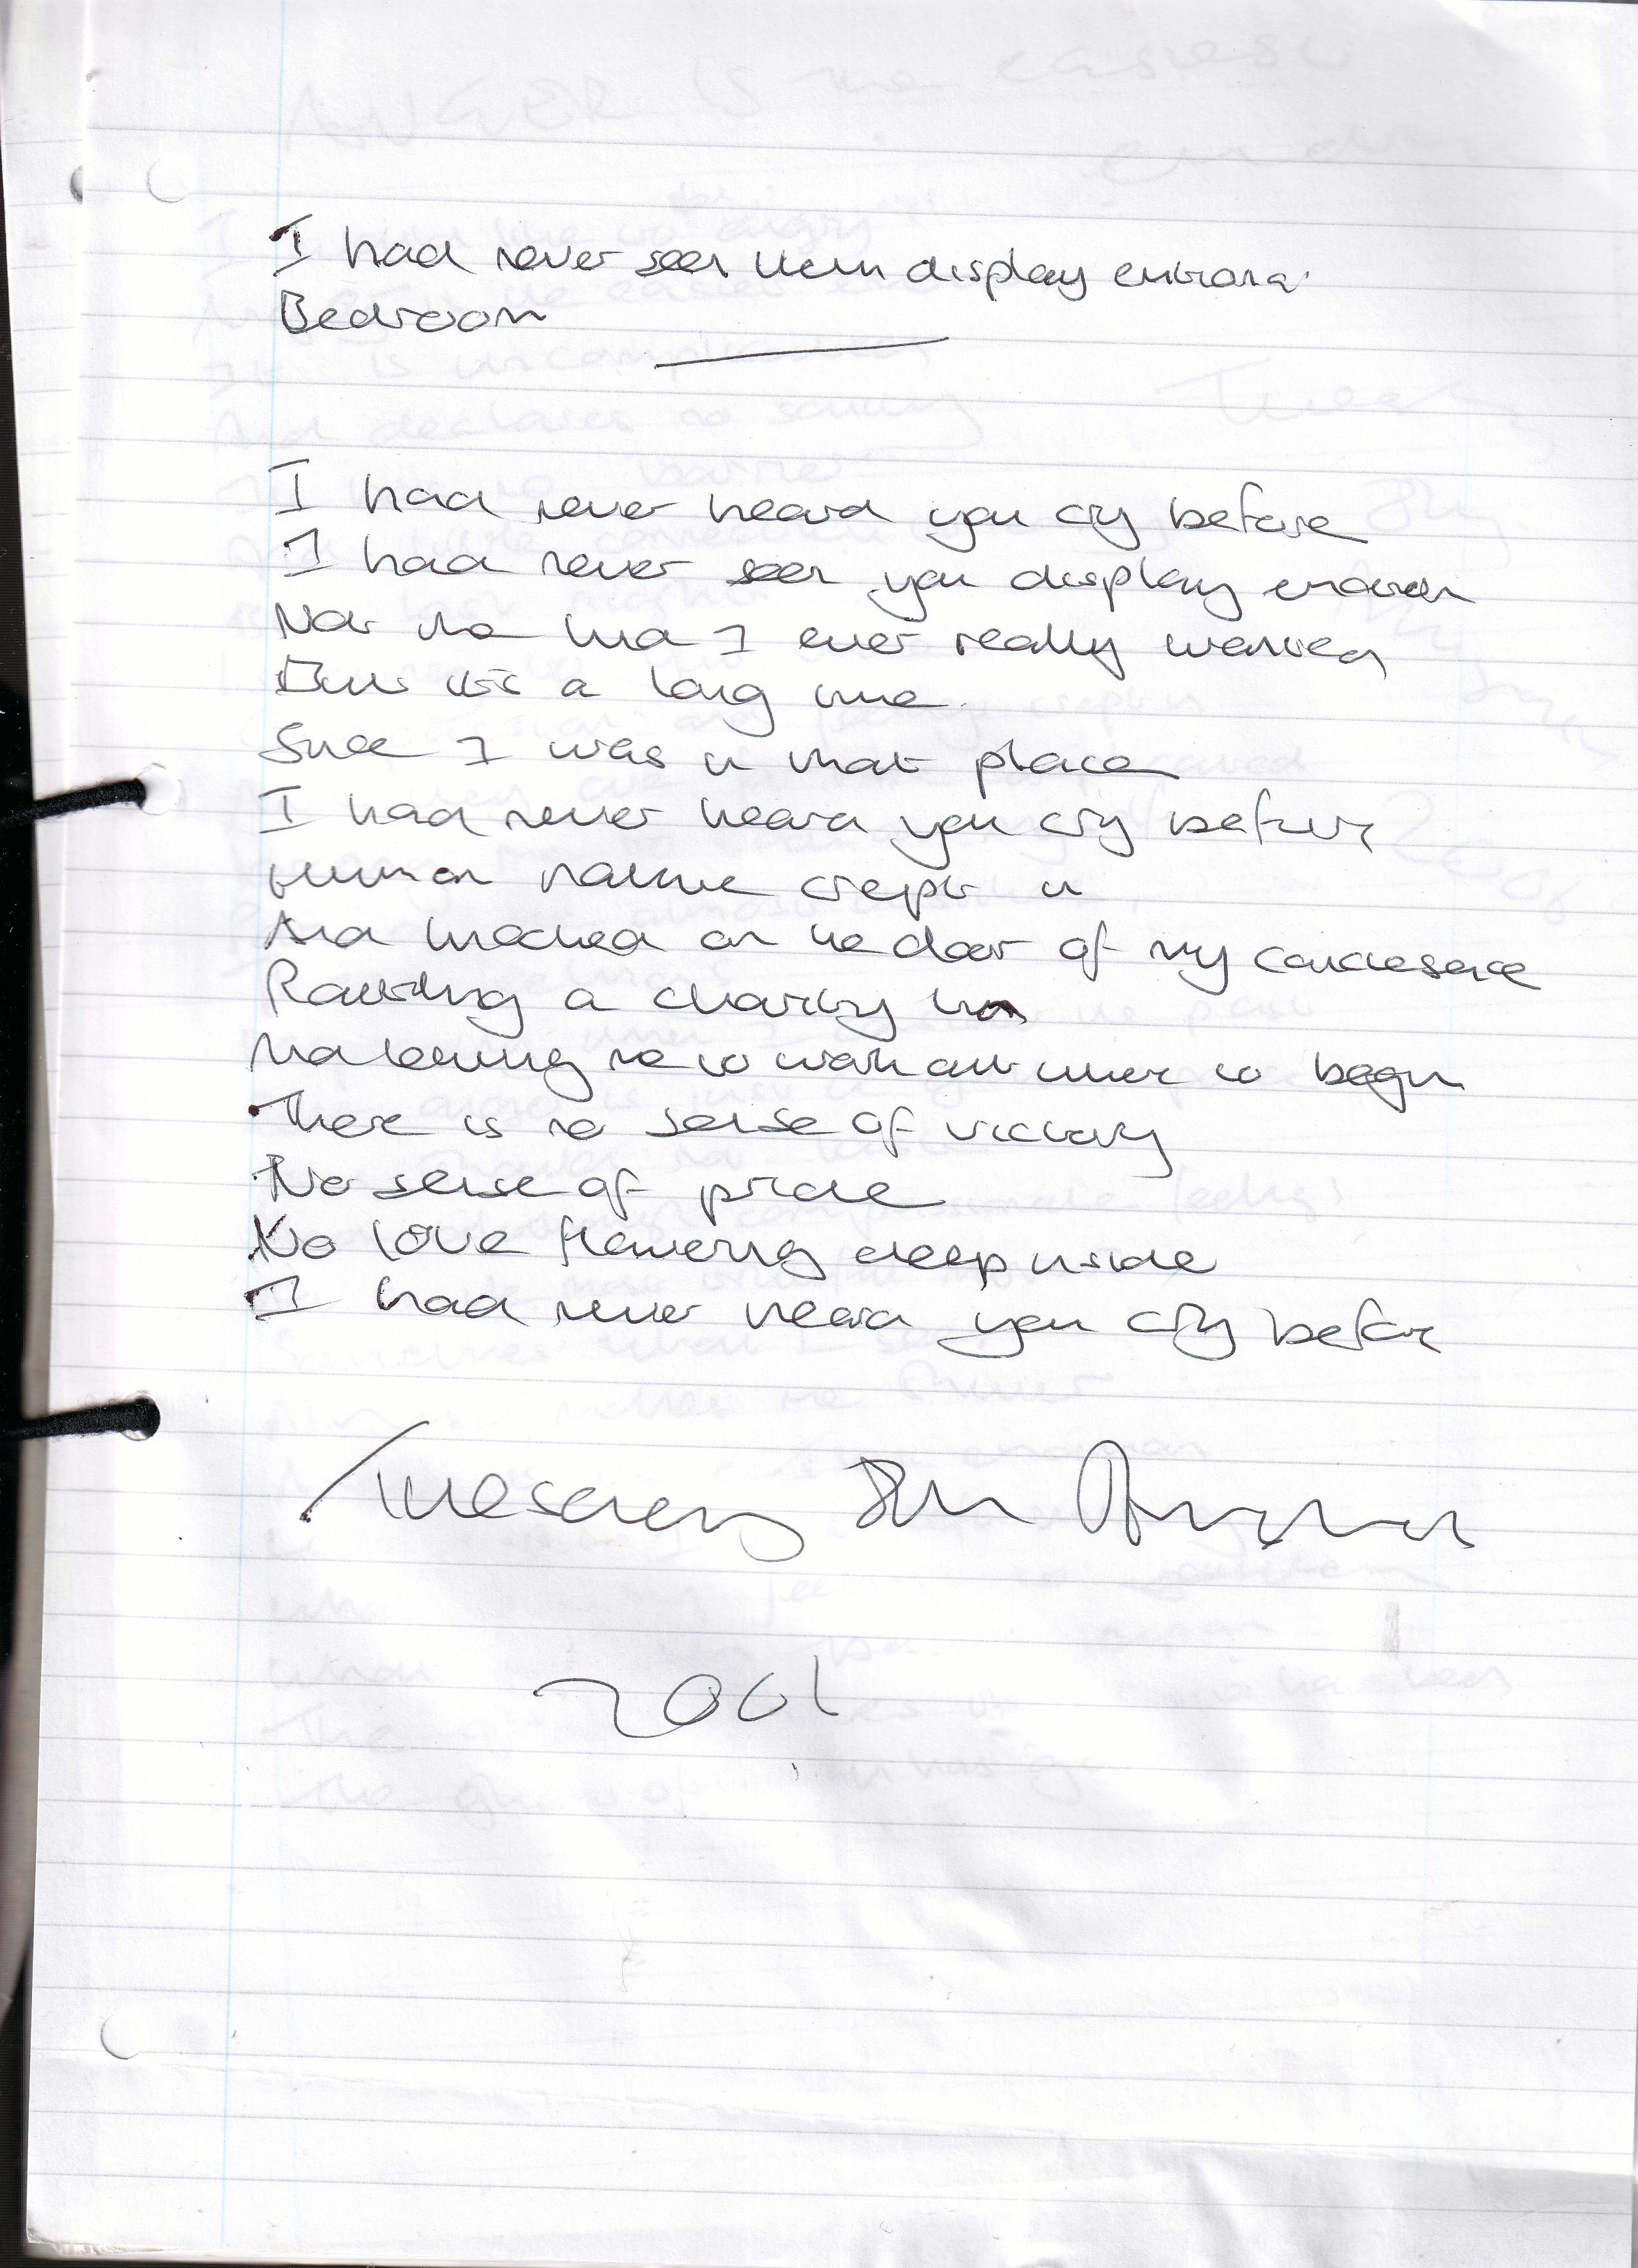 I had never seen them display emotional
Bedroom
I had never heard you cry before
I had never seen you display emotion
Nor had I ever really wanted
But it's a long time
Since I was in that place
I had never heard you cry before
Human nature crept in
And knocked on the door of my conscience
Rattling a charity tin
me to without to begin
There is no sense of victory
No sense of pride
No love flowering deep inside
I had never heard you cry before
Wednesday 8th August
2001